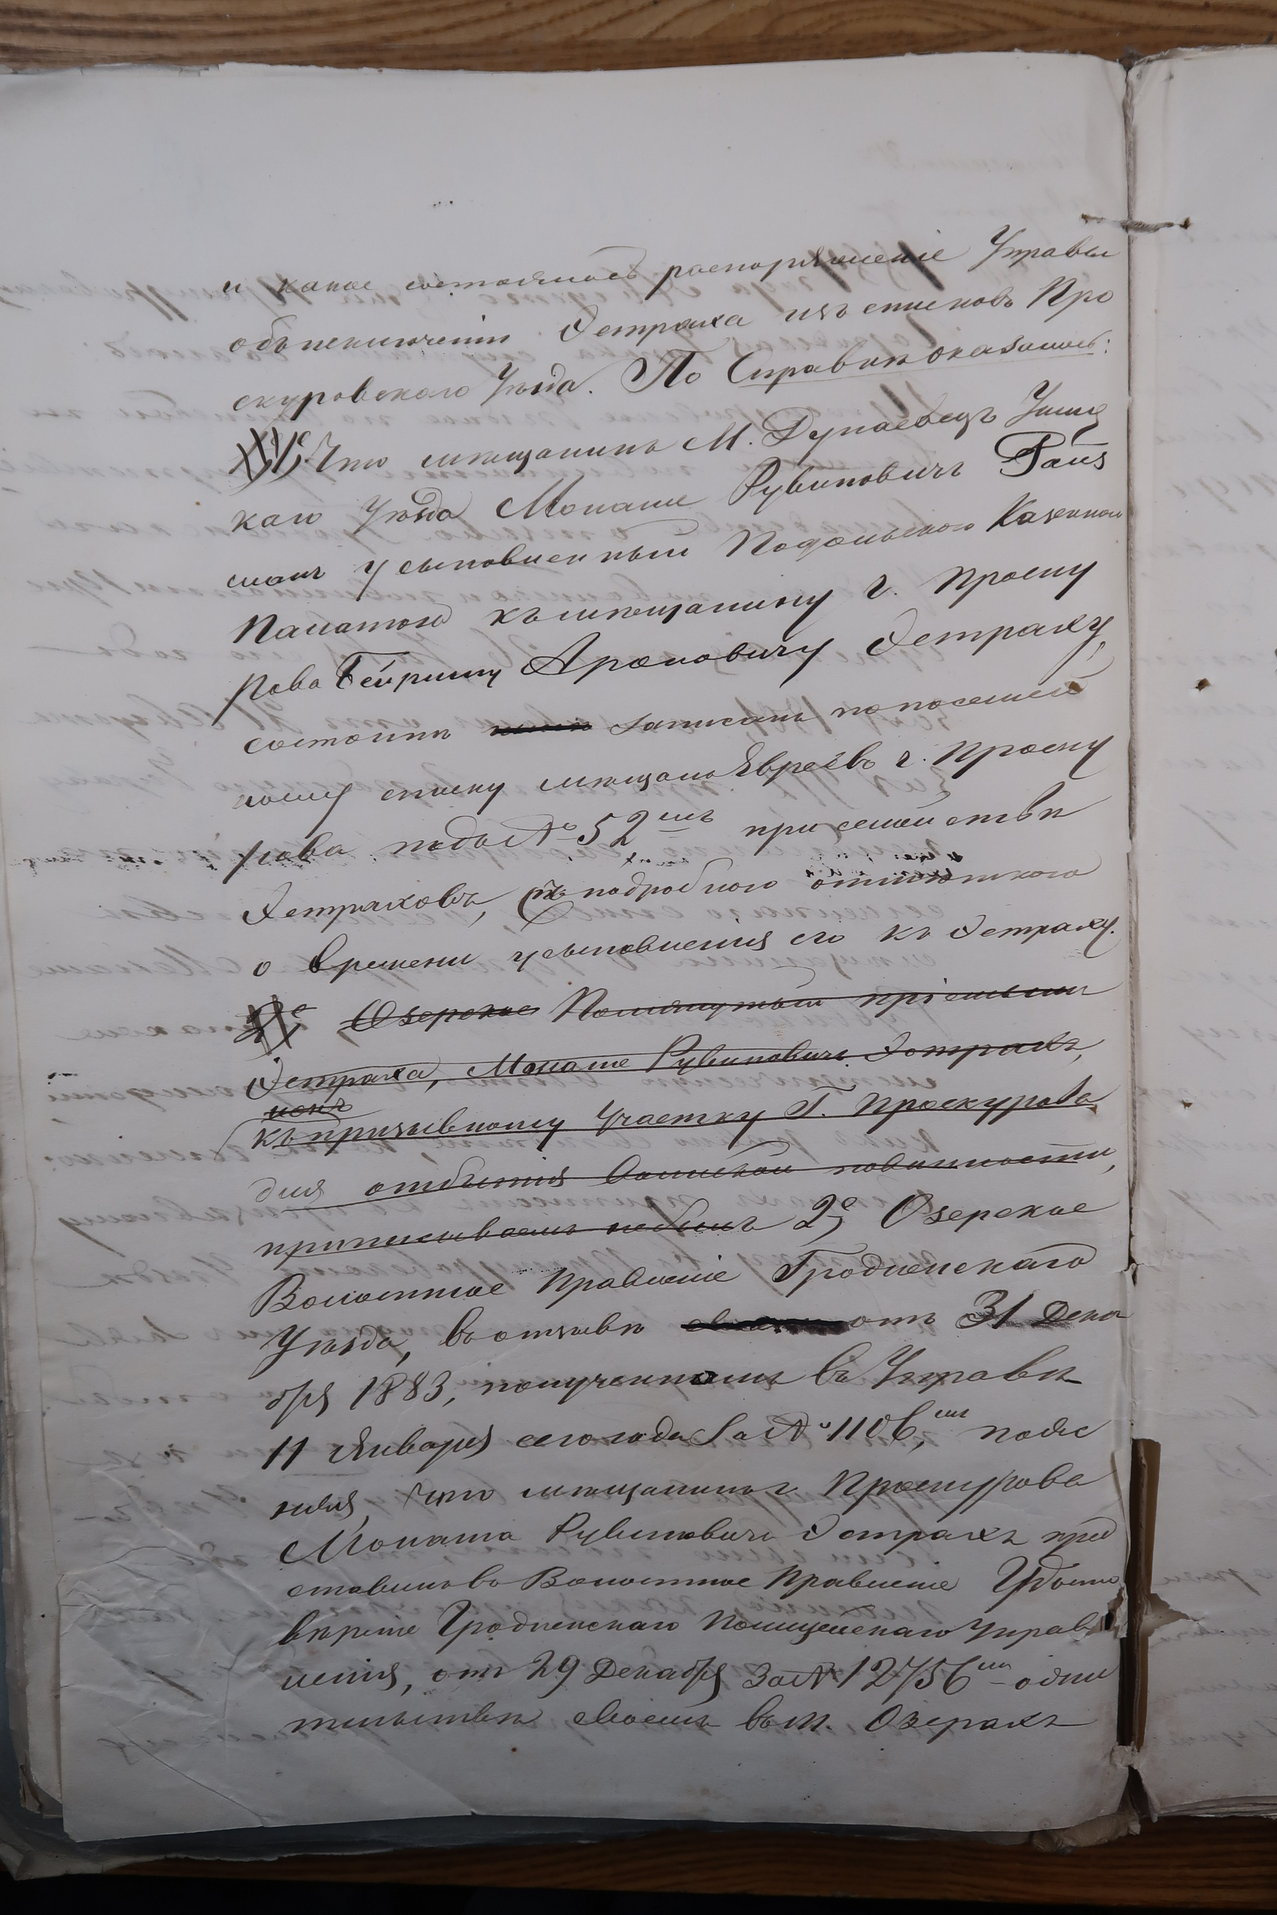 и какое состоялось распоряженіе Управы
объ исключеніи Эстраха изъ списковъ Про
скуровскаго Уѣзда. По Справкѣ оказалось:
1е, Что мѣщанинъ М. Дунаевецъ Ушиц
каго Уѣзда Монаше Рувиновичъ Райз
манъ усыновленный Подольскою Казенною
Палатою къ мѣщанину г. Проску
рова Бейришу Ароновичу Эстраху,
состоитъ записанъ по посемей
ному списку мѣщанъ Евреевъ г. Проску
рова подъ № 52мъ при семействѣ
Эстраховъ, подробного
о времени усыновленія его къ Эстраху.
2е Озерское Помянутый пріемышъ
Эстраха, Монаше Рувиновичъ Эстрахъ,
къ призывному Участку Г. Проскурова
для отбытія Воинской повинности,
приписываемъ небылъ 2е, Озерское
Волостное Правленіе Гродненскаго
Уѣзда, въ отзывѣ отъ 31 Дека
бря 1883, полученномъ въ Управѣ
11 Января сего года за № 1106,мъ пояс
няя, что мѣщанинъ г. Проскурова
Монаша Рувиновичъ Эстрахъ пред
ставилъ въ Волостное Правленіе Удосто
вѣреніе Гродненскаго Полицейскаго Управ
ленія, отъ 29 Декабря за № 12756мъ о жи
тельствѣ своемъ въ м. Озерахъ